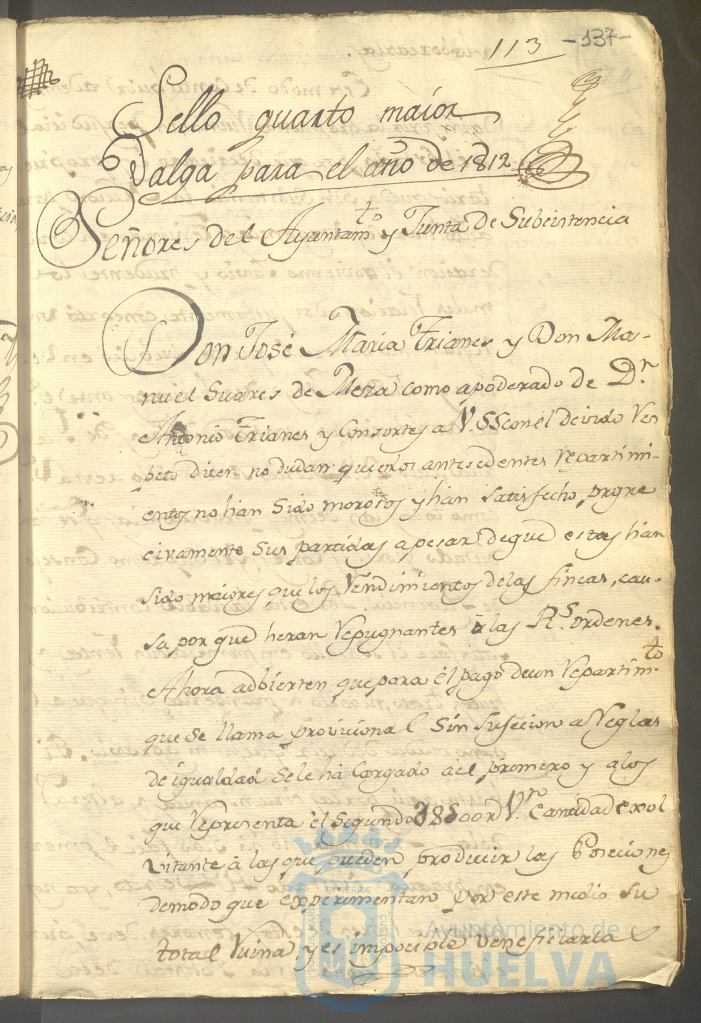 113 -137-
Sello quarto maior
Valga para el año de 1812
Señores del Ayuntam.to y Junta de Subsistencia
Don José Maria Trianes y Don Ma-
nuel Suares de Meza como apoderado de D.n
Antonio Trianes y Consortes a V.SS con el devido Res
peto dicen no dudan que en los antesedentes Repartimi-
entos no han Sido morosos y han satisfecho prgre
civamente sus partidas apesar de que estas han
sido maiores que los Rendimientos delas fincas, cau-
sa por que heran Repugnantes á las R.s ordenes.
Ahora adbierten que para el pago deun Repartim.to
que se llama provicional Sin sujecion a Reglas
de igualdad sele há Cargado áel primero y alos
que Representa el Segundo R.n Cantidad exol
vitante á las que pueden producir las Poseciones
demodo que experimentan por este medio su
total Ruina y es imposible Veneficiarla
Ayuntamiento de
HUELVA